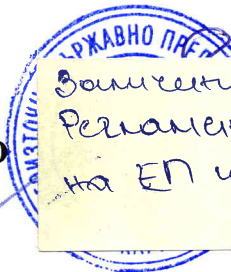 ДЪРЖАВНО ПРЕД
Заличени
Регламен
на ЕП и